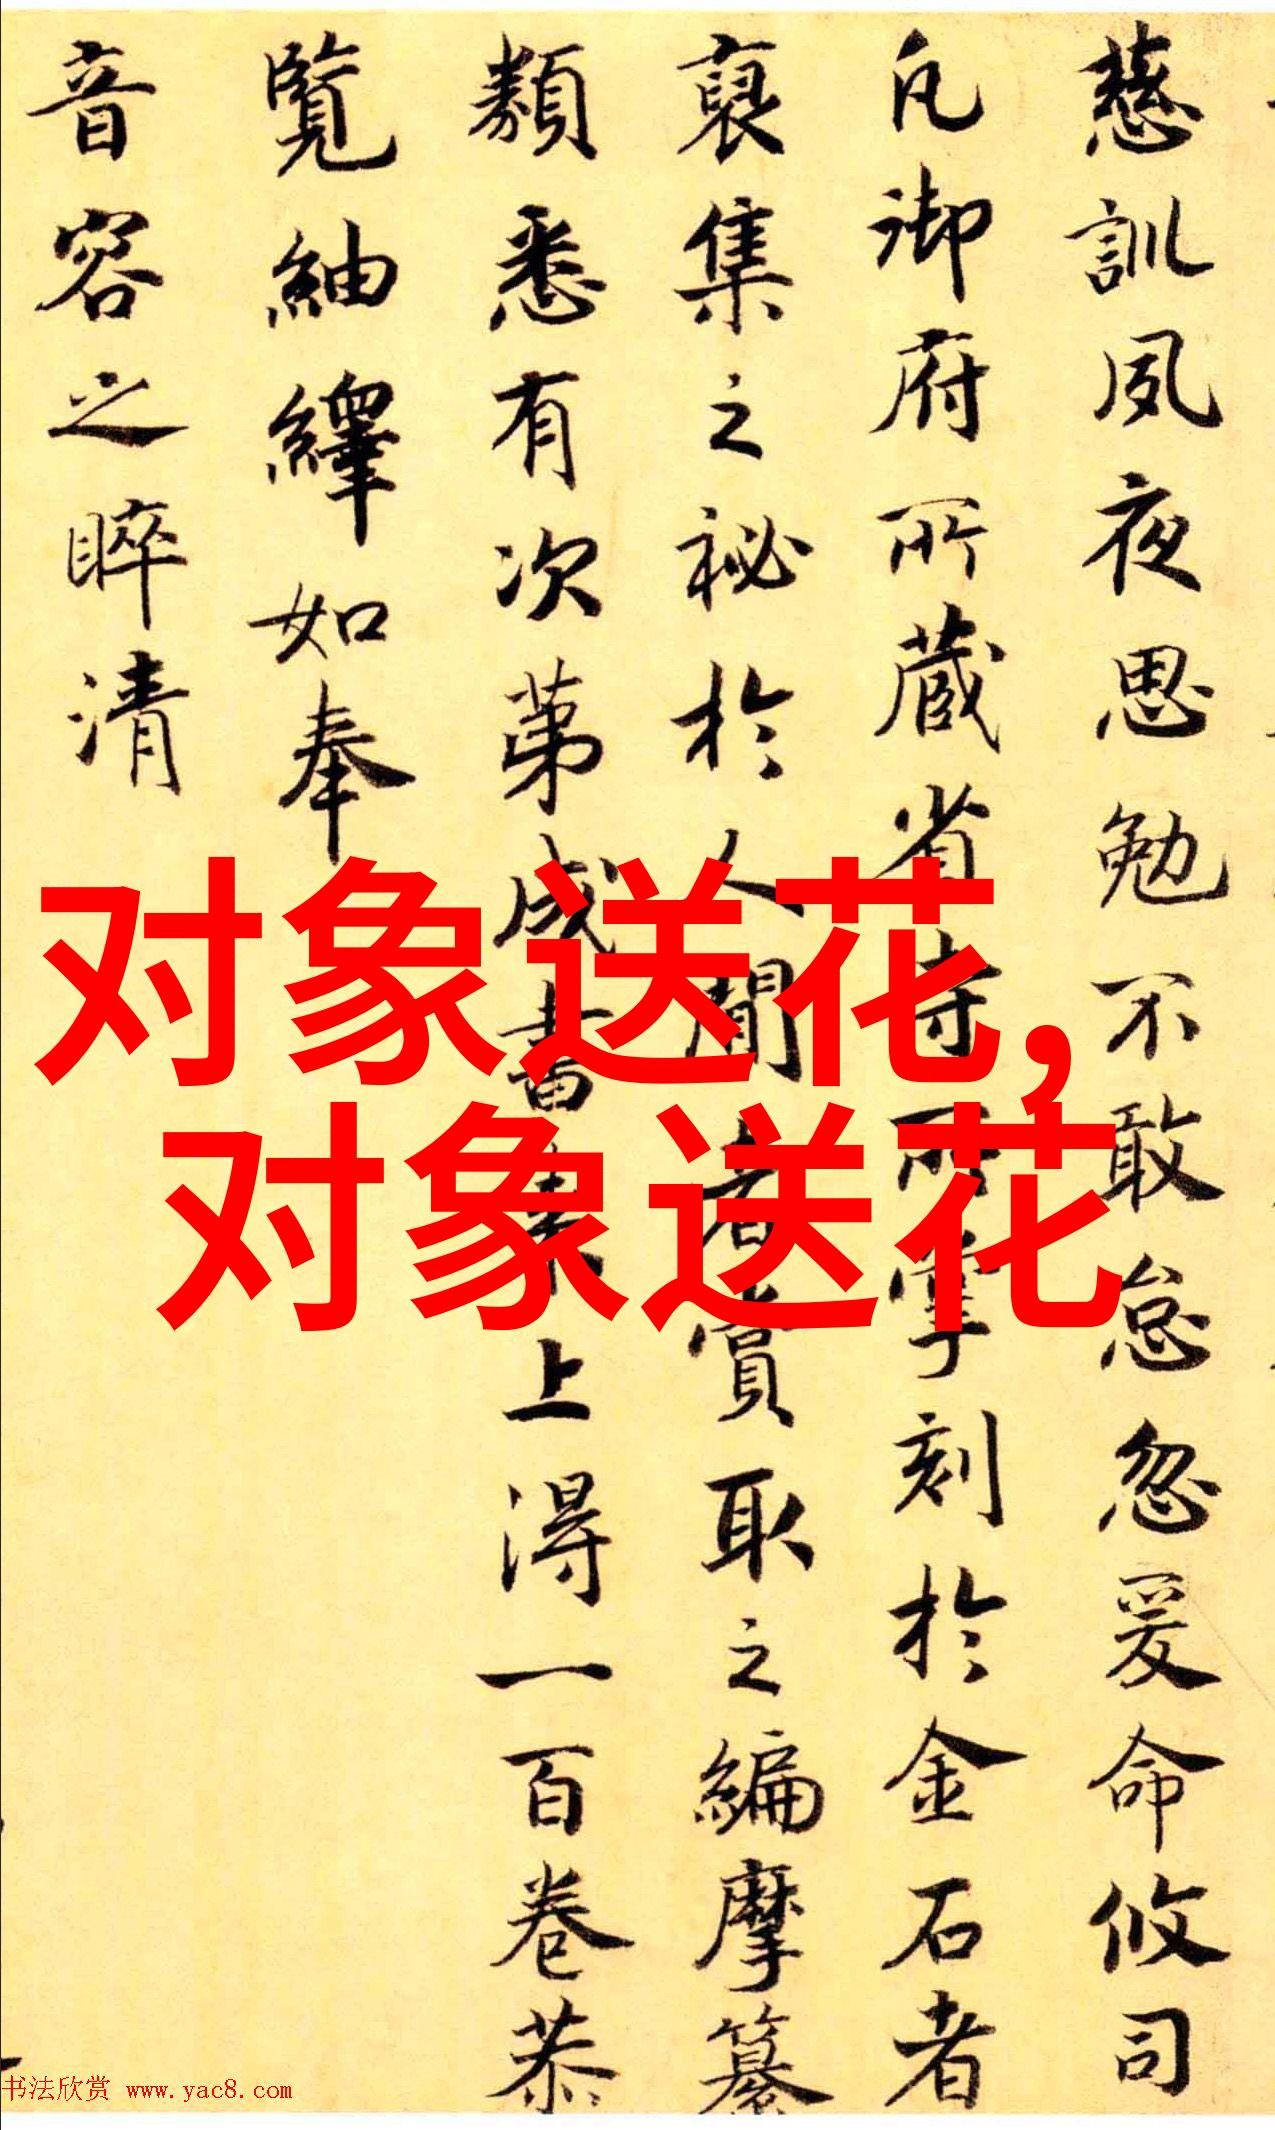 慈訓夙夜思勉不敢怠忽爰命攸司
凡御府所藏省寺所掌刻於金石者
裒集之祕於人間者賞取之編摩纂
類悉有次第成書來上淂一百卷恭
覽紬繹如奉
音容之睟清
对象送花,
对象送花
书法欣赏 www.yac8.com